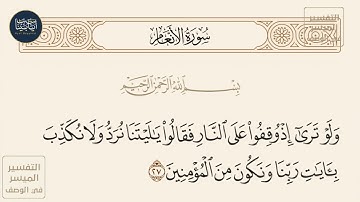 سُورَةُ الأَنْعَامِ
التفسير
الميسر
بِسْمِ اللَّهِ الرَّحْمَٰنِ الرَّحِيمِ
وَلَوْ تَرَىٰٓ إِذْ وُقِفُوا۟ عَلَى ٱلنَّارِ فَقَالُوا۟ يَٰلَيْتَنَا نُرَدُّ وَلَا نُكَذِّبَ
بِـَٔايَٰتِ رَبِّنَا وَنَكُونَ مِنَ ٱلْمُؤْمِنِينَ ٢٧
التفسير
الميسر
في الوصف